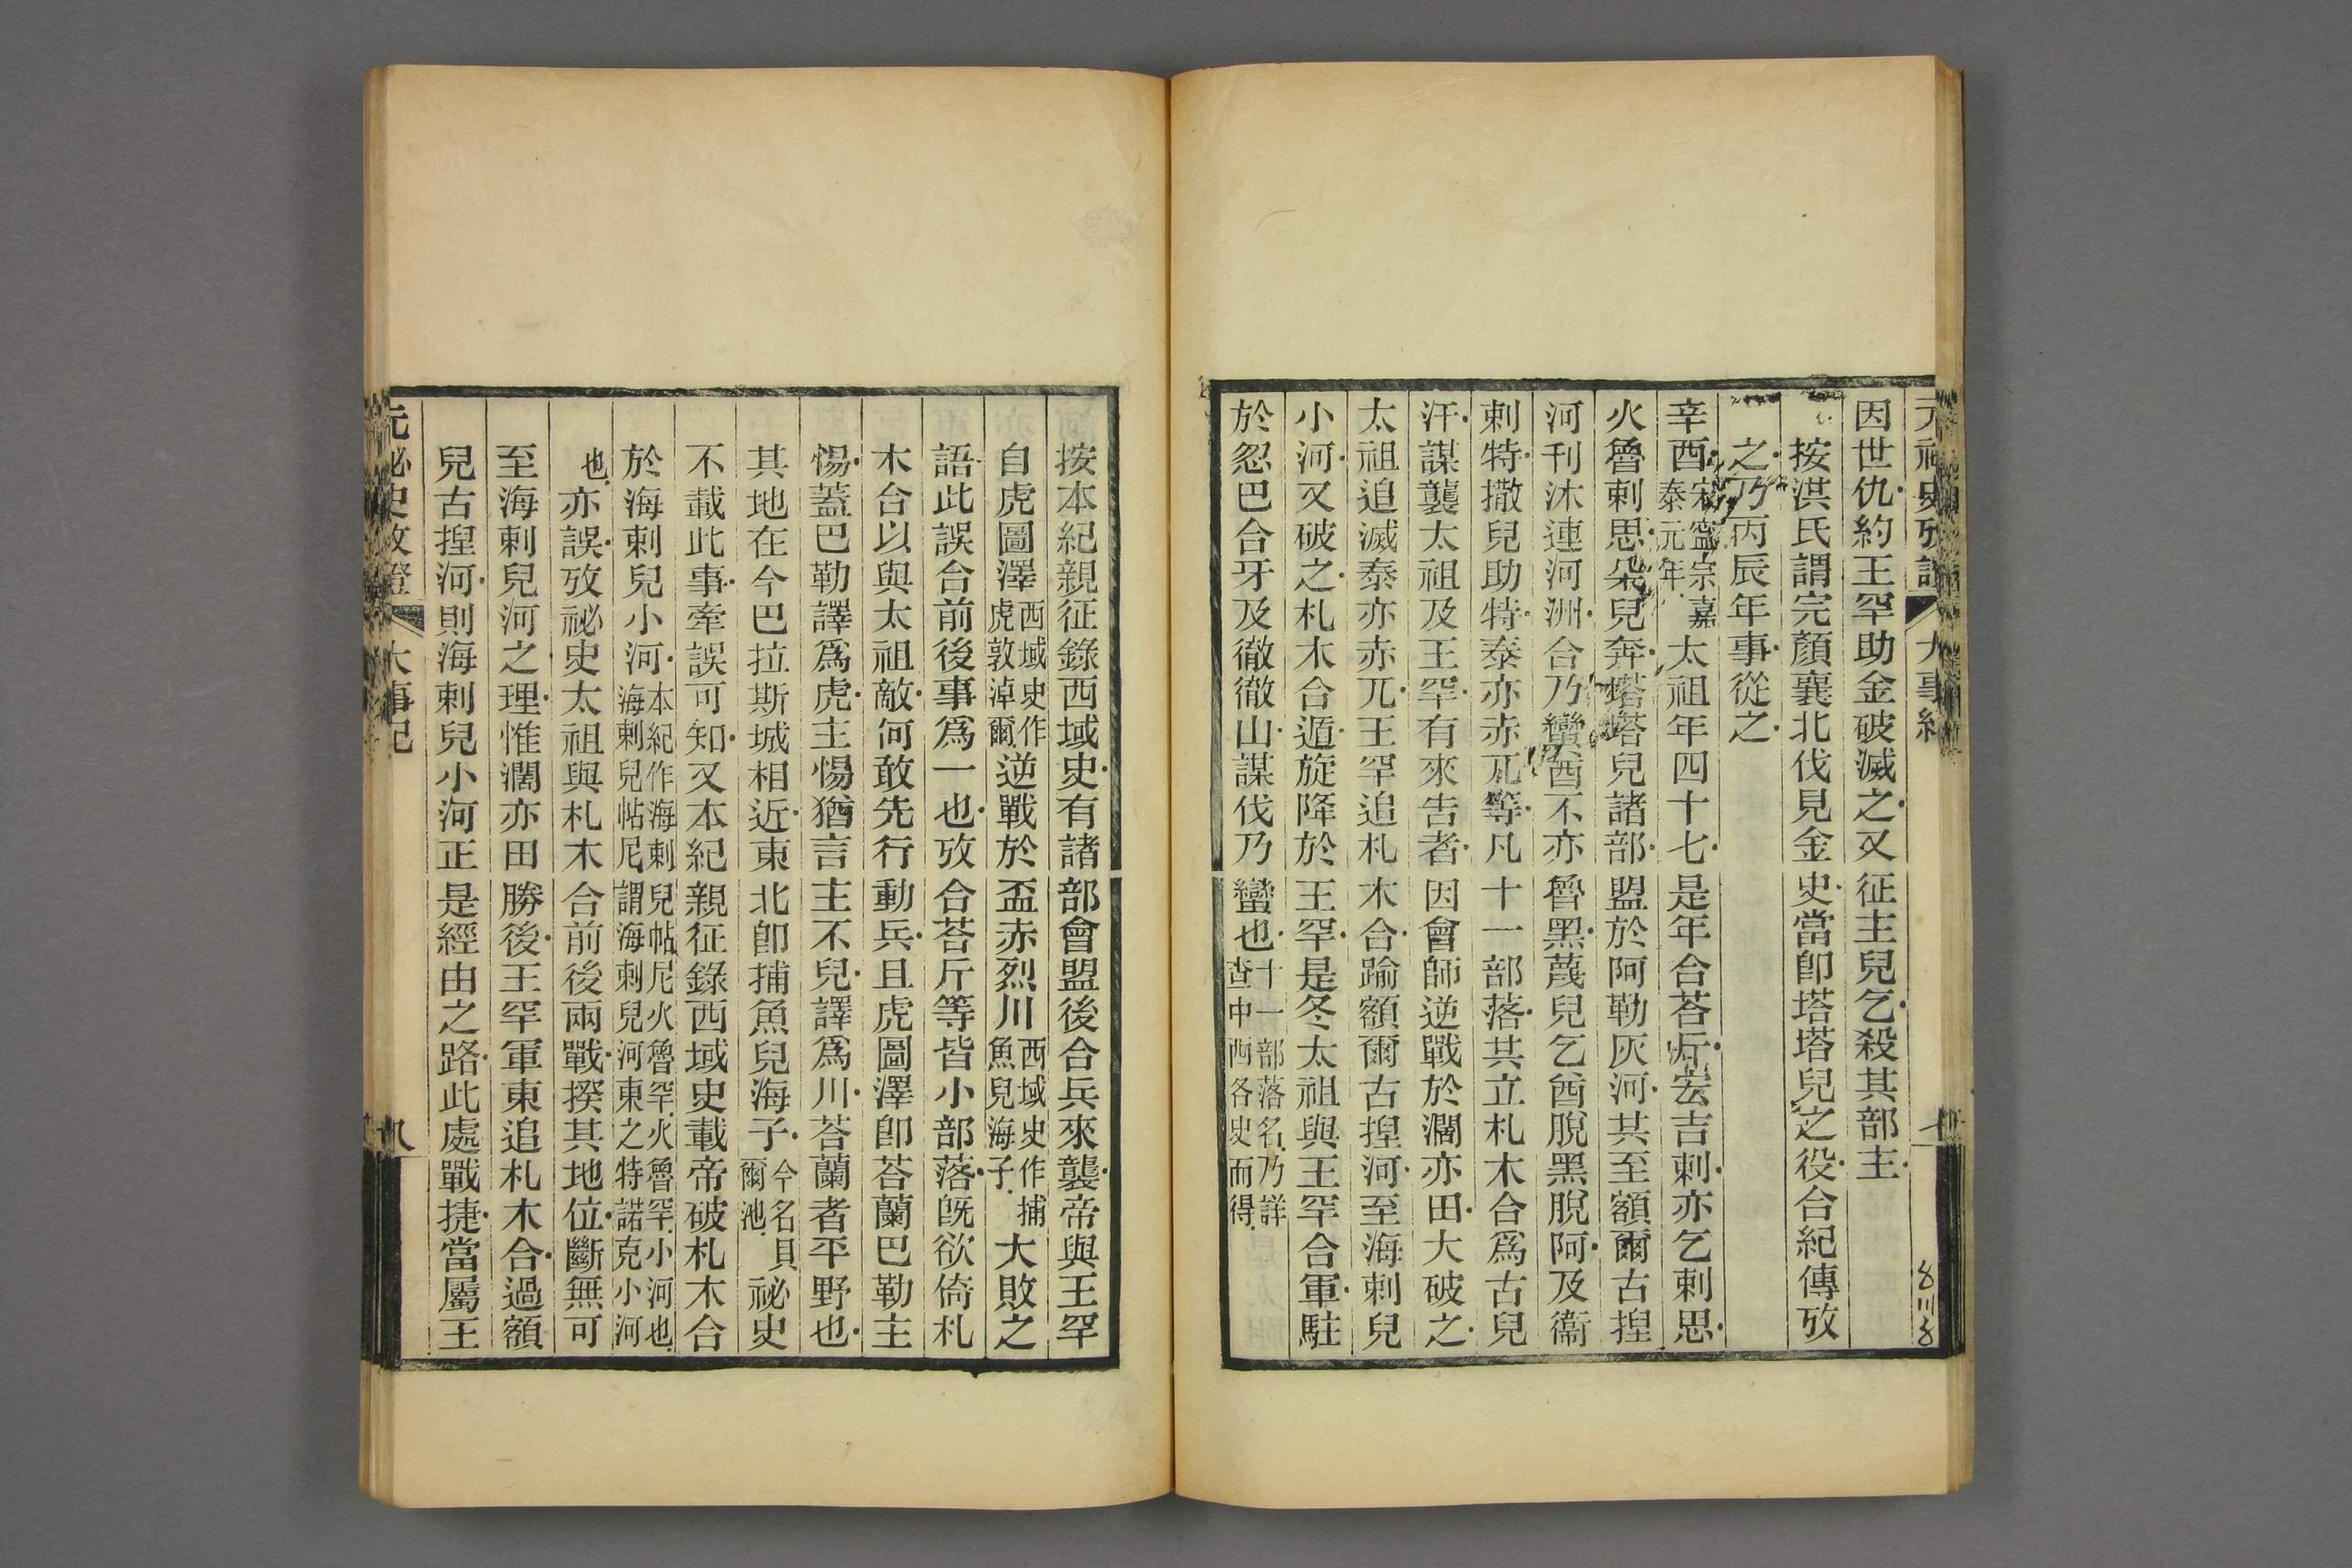 因世仇約王罕助金破滅之又征主兒乞殺其部主
按淇氏謂完顏襄北伐見金史當卽塔塔兒之役合紀傳攷
之乃丙辰年事從之
辛酉宋寧宗嘉泰元年太祖年四十七是年合荅斤宏吉剌亦乞剌思
火魯剌思朵兒奔塔塔兒諸部盟於阿勒灰河其至額爾古揑
河刊沐連河洲合乃蠻酋不亦魯黑蔑兒乞酋脫黑脫阿及衞
剌特撒兒助特泰亦赤兀等凡十一部落共立札木合爲古兒
汗謀襲太祖及王罕有來告者因會師逆戰於濶亦田大破之
太祖追滅泰亦赤兀王罕追札木合踰額爾古揑河至海剌兒
小河又破之札木合遁旋降於王罕是冬太祖與王罕合軍駐
於忽巴合牙及徹徹山謀伐乃蠻也十一部落名乃詳查中西各史而得
七
8川8
按本紀親征錄西域史有諸部會盟後合兵來襲帝與王罕
自虎圖澤西域史作虎敦淖爾逆戰於盃赤烈川西域史作捕魚兒海子大敗之
語此誤合前後事爲一也攷合荅斤等皆小部落旣欲倚札
木合以與太祖敵何敢先行動兵且虎圖澤卽荅蘭巴勒主
惕蓋巴勒譯爲虎主惕猶言主不兒譯爲川荅蘭者平野也
其地在今巴拉斯城相近東北卽捕魚兒海子今名貝爾池祕史
不載此事牽誤可知又本紀親征錄西域史載帝破札木合
於海剌兒小河本紀作海剌兒帖尼火魯罕火魯罕小河也海剌兒帖尼謂海剌兒河東之特諾克小河
也亦誤攷祕史太祖與札木合前後兩戰揆其地位斷無可
至海剌兒河之理惟濶亦田勝後王罕軍東追札木合過額
兒古揑河則海剌兒小河正是經由之路此處戰捷當屬王
元祕史攷證 大事記 八